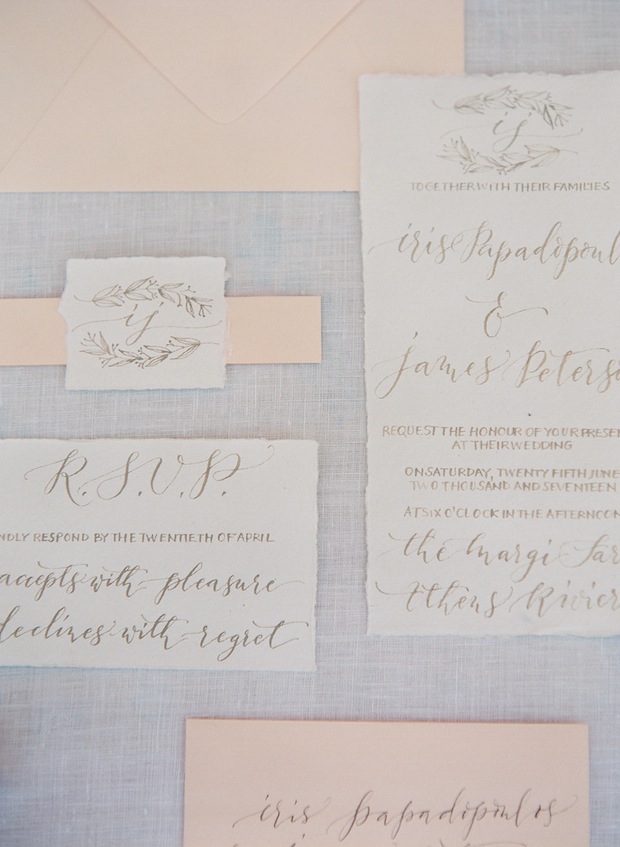 ij
TOGETHER WITH THEIR FAMILIES
iris Papadopoul
&
james Peters
REQUEST THE HONOUR OF YOUR PRESEN
AT THEIR WEDDING
ON SATURDAY, TWENTY FIFTH JUNE
TWO THOUSAND AND SEVENTEEN
AT SIX O'CLOCK IN THE AFTERNOON
the Margi Far
Athens Rivier
ij
R.S.V.P.
NDLY RESPOND BY THE TWENTIETH OF APRIL
accepts with pleasure
declines with regret
iris papadopoulos